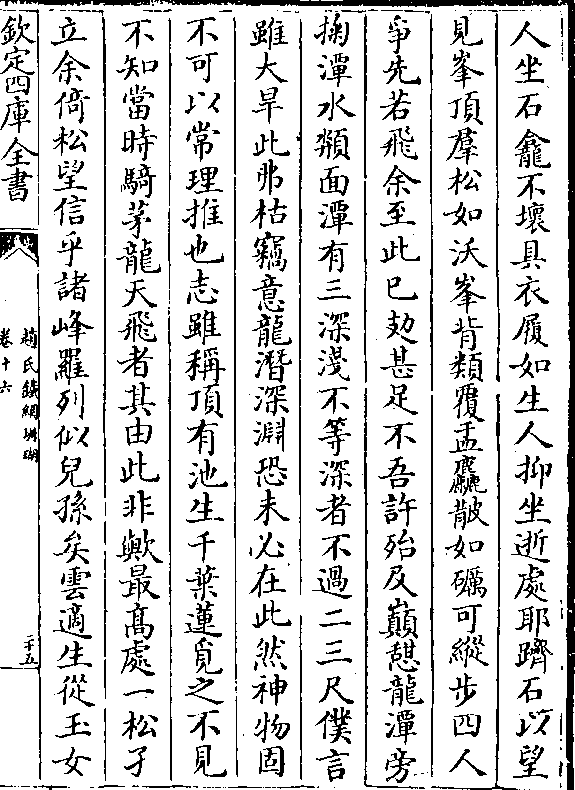 人坐石龕不壞具衣履如生人抑坐逝處耶躋石以望
見峯頂羣松如沃峯背類覆盂麤皵如礪可縱步四人
爭先若飛余至此已勊甚足不吾許殆及巔憇龍潭旁
掬潭水頮面潭有三深淺不等深者不過二三尺僕言
雖大旱此弗枯竊意龍潛深淵恐未必在此然神物固
不可以常理推也志雖稱頂有池生千葉蓮覓之不見
不知當時騎茅龍天飛者其由此非歟最高處一松孑
立余倚松望信乎諸峰羅列似兒孫矣雲適生從玉女
欽定四庫全書
趙氏鐵網珊瑚
卷十六
二十五